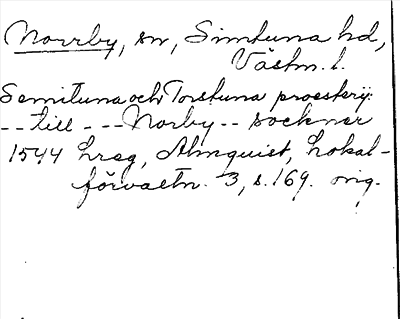 Norrby, sn, Simtuna hd,
Västm. l.
Semituna och Torstuna proesterij:
-- till --- Norby -- sockner
1544 Lreg, Almquist, Lokal-
förvaltn. 3, s. 169. orig.